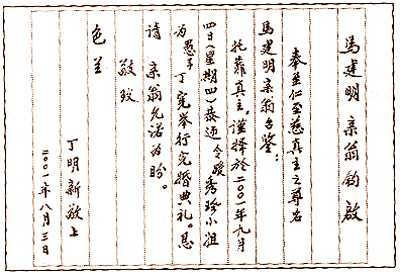 馬建明 亲翁钧啟
奉至仁至慈真主之尊名
馬建明亲翁台鉴：
托靠真主，谨择於二〇〇一年九月
四日(星期四)恭迎令嫒秀珍小姐
为愚子丁宪举行完婚典礼。恳
请 亲翁允诺为盼。
敬致
色兰
丁明新敬上
二〇〇一年八月三日